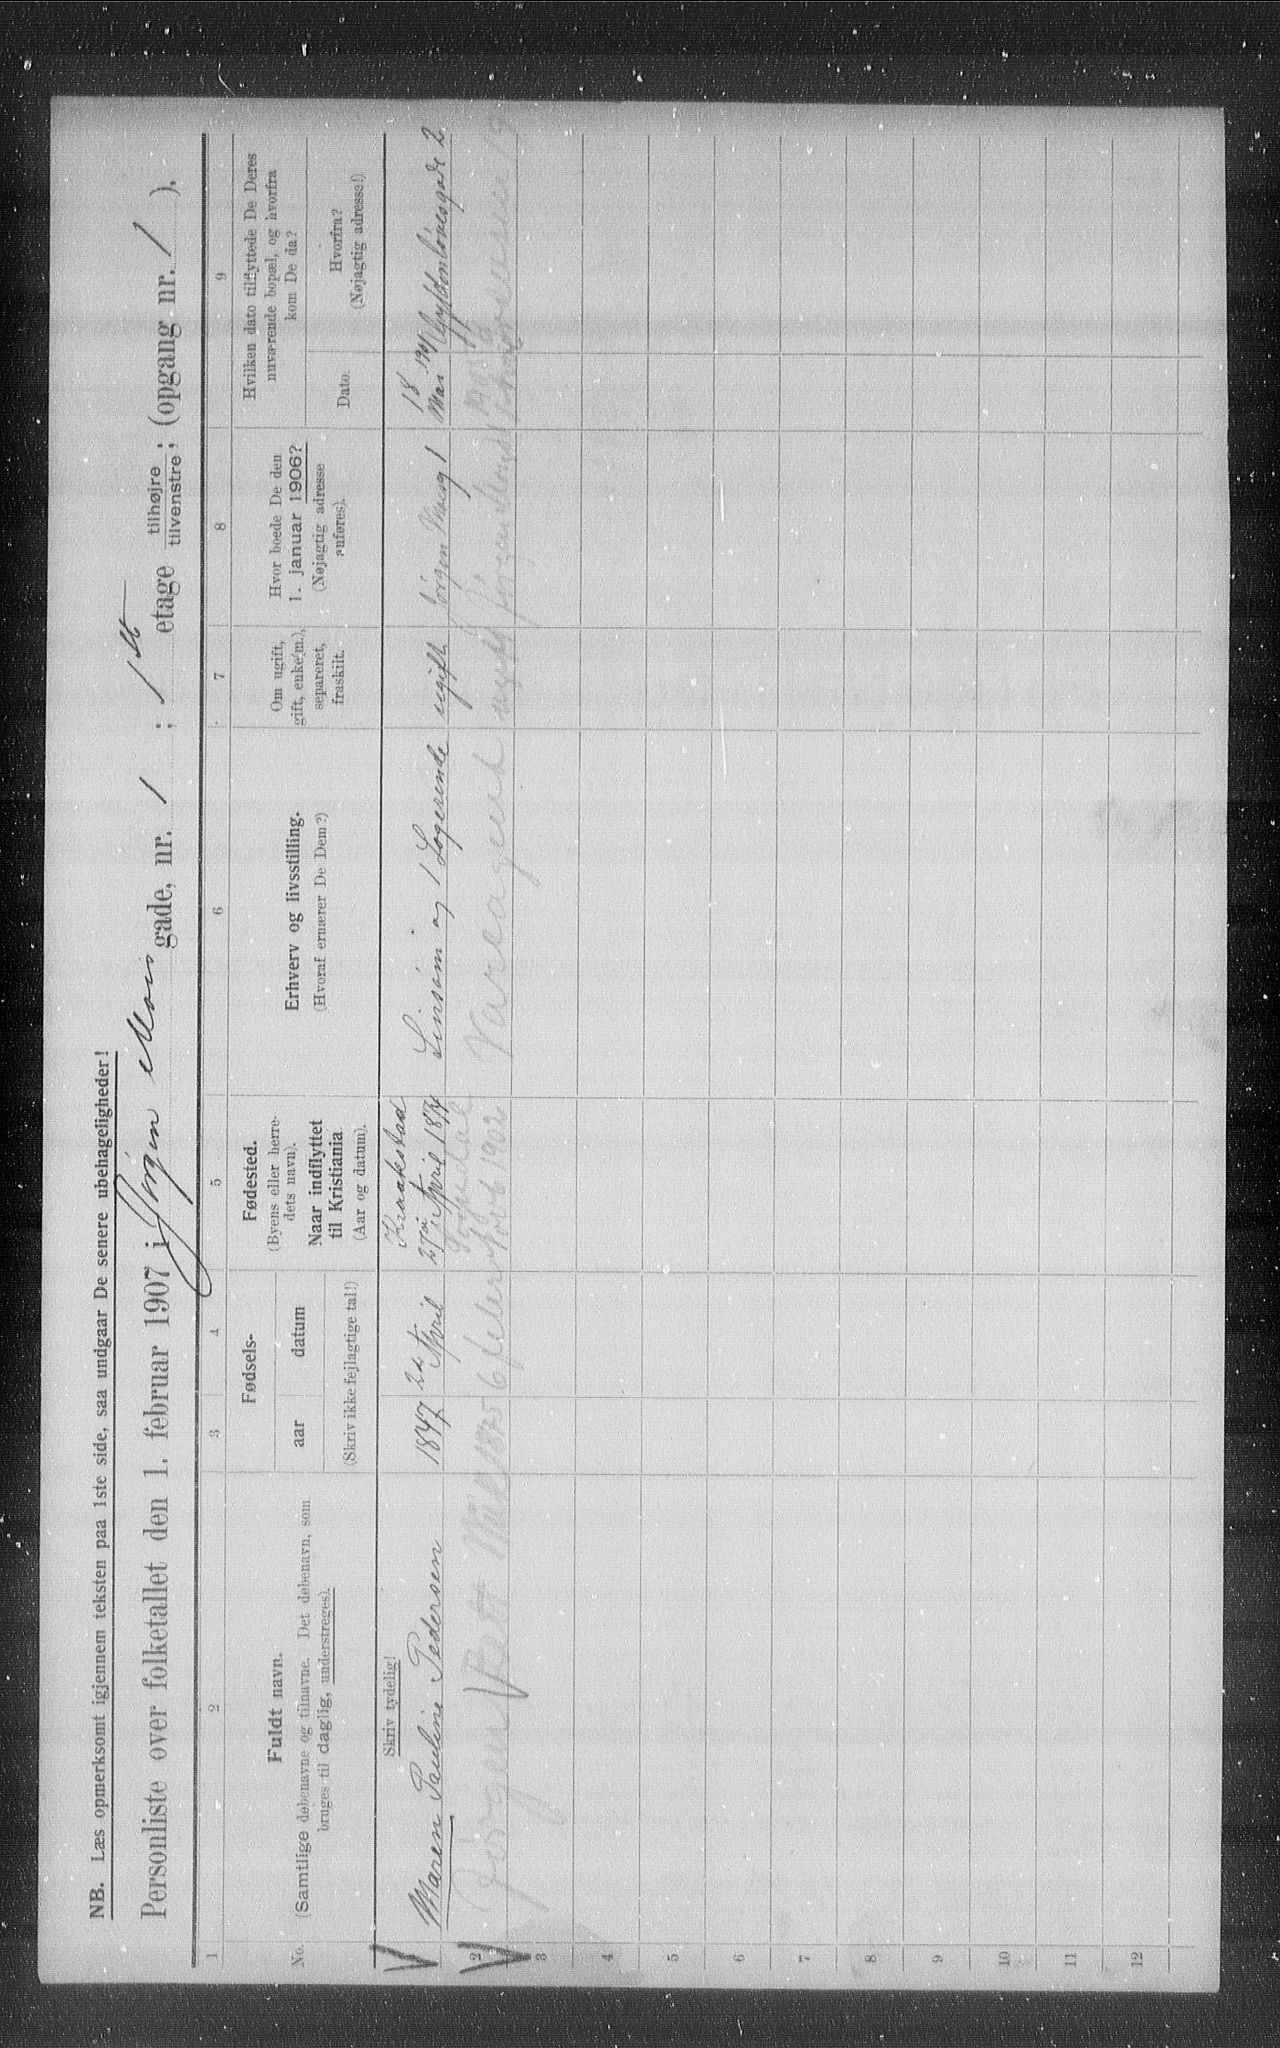 NB. Læs opmerksomt igjennem teksten paa 1ste side, saa undgaar De senere ubehageligheder!
Personliste over folketallet den 1. februar 1907 i Jørgen Mois gade, nr. 1 ; 1ste etage tilhøjre tilvenstre; (opgang nr. 1 ).
1 2 3 4 5 6 7 8 9
No.
Fuldt navn.
(Samtlige døbenavne og tilnavne. Det døbenavn, som
bruges til daglig, understreges).
Fødsels-
aar datum
(Skriv ikke fejlagtige tal!)
Fødested.
(Byens eller herre-
dets navn).
Naar indflyttet
til Kristiania
(Aar og datum).
Erhverv og livsstilling.
(Hvoraf ernærer De Dem?)
Om ugift,
gift, enke(m.),
separeret,
fraskilt.
Hvor boede De den
1. januar 1906?
(Nøjagtig adresse
anføres).
Hvilken dato tilflyttede De Deres
nuværende bopæl, og hvorfra
kom De da?
Dato.
Hvorfra?
(Nøjagtig adresse!)
Skriv tydelig!
Maren Pauline Pedersen 1847 24 April Kraakstad 27de April Linsøm og 1 Logerende ugift Jørgen Moisg 1 18 Mai Gyldenløvesgade 2
2 Jørgen 1875 6 1902 Vareagent ugift
3
4
5
6
7
8
9
10
11
12